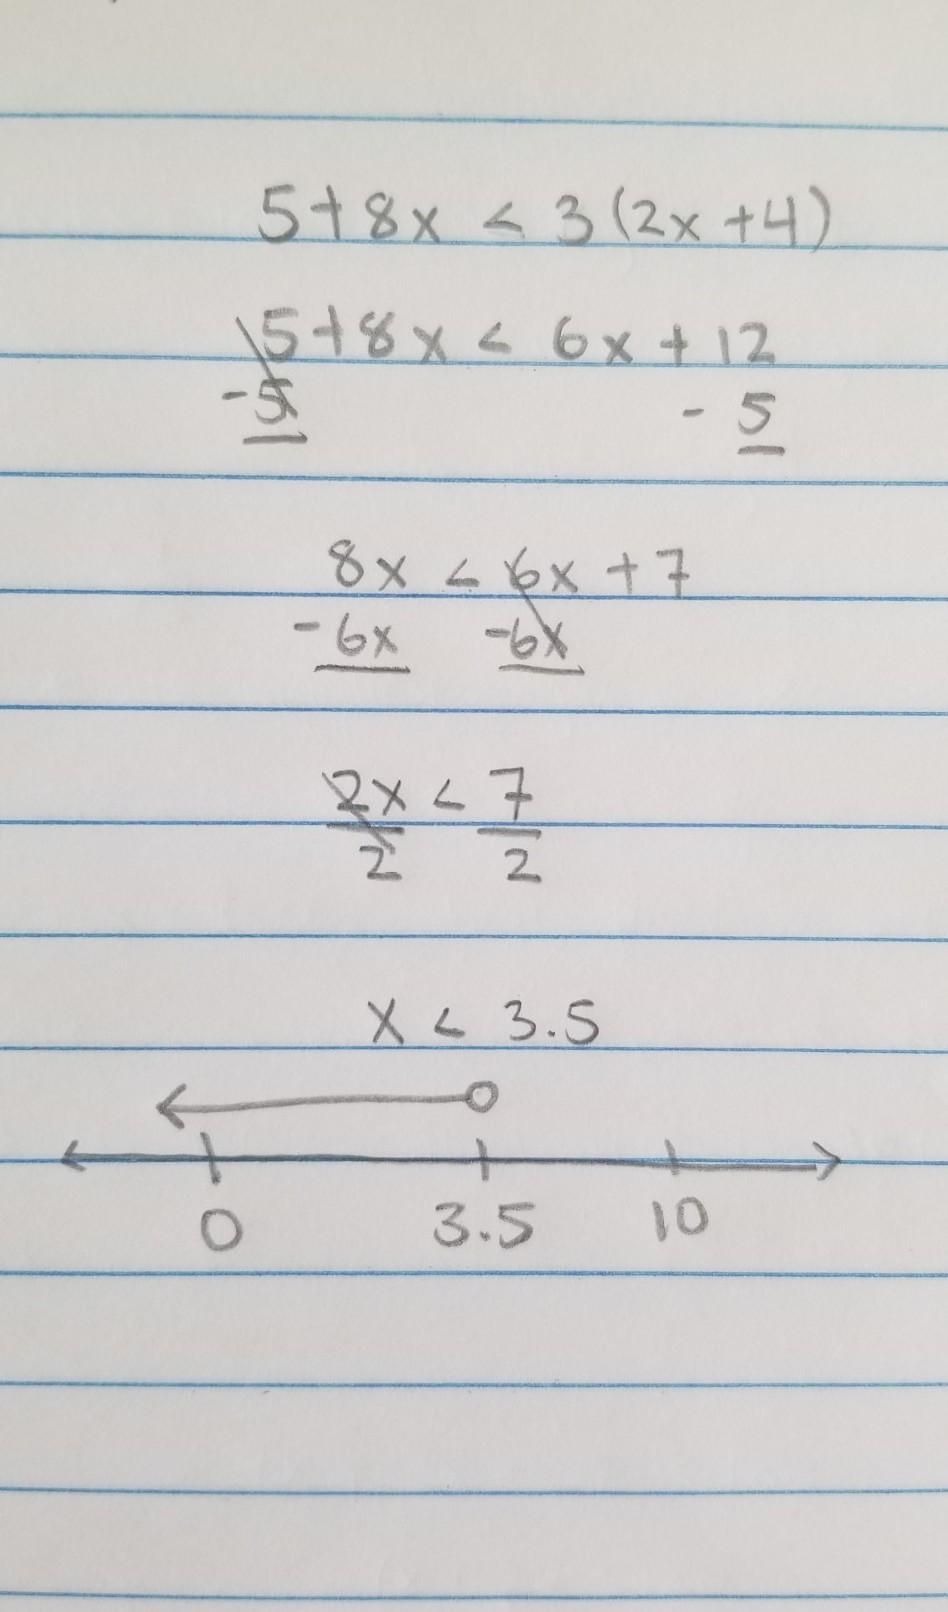 5+8x < 3(2x+4)
5+8x < 6x+12
-5 - 5
8x < 6x +7
-6x -6x
2x < 7
2 2
x < 3.5
0 3.5 10